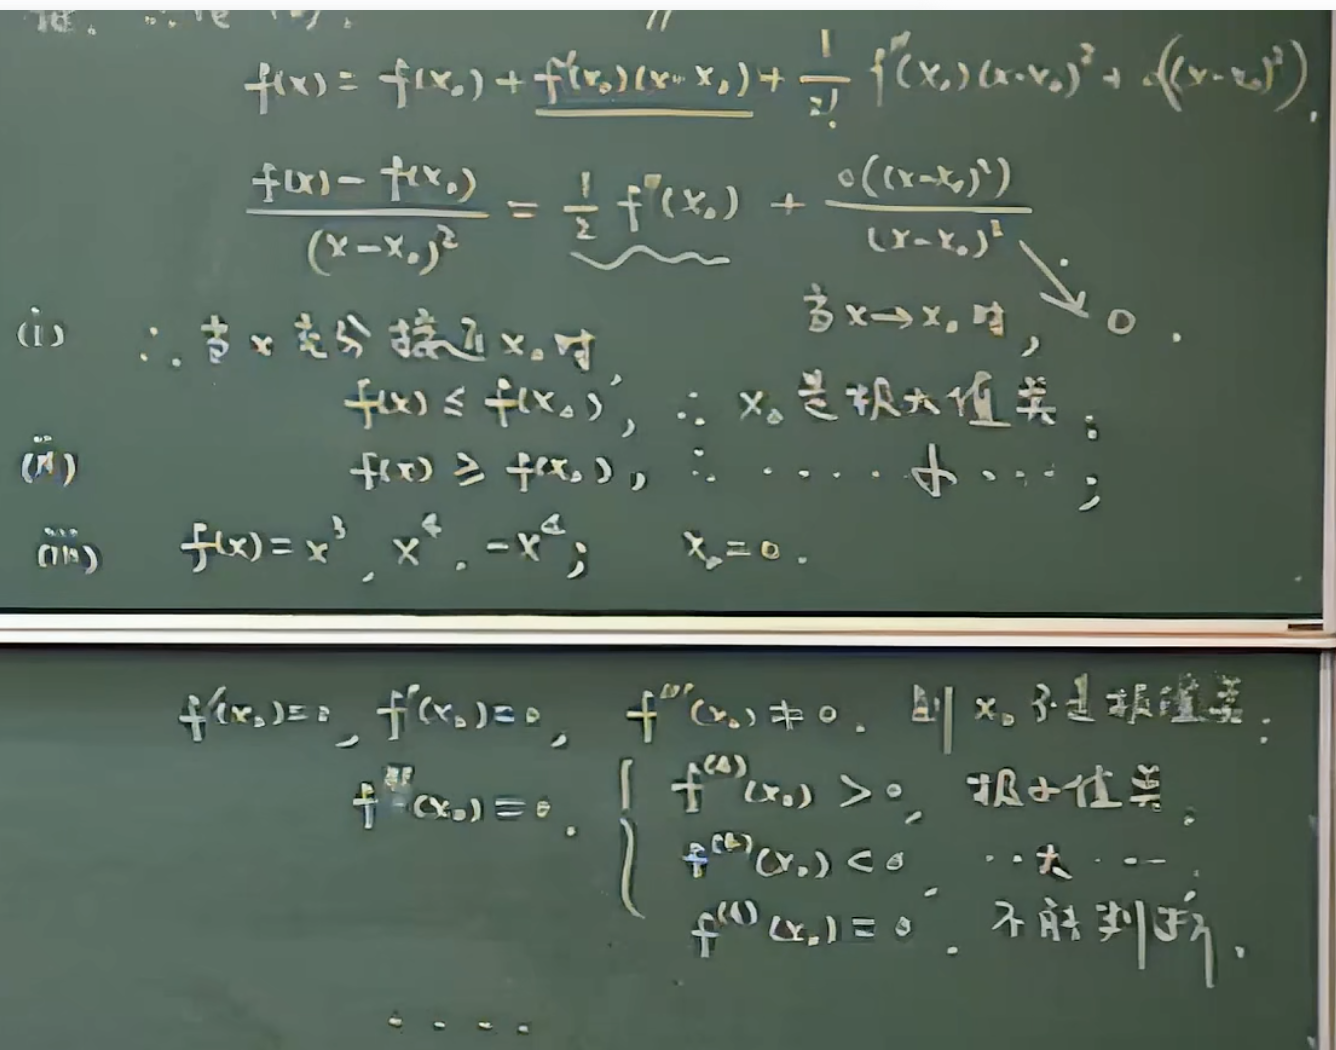 f(x) = f(x₀) + f'(x₀)(x-x₀) + 1/2! f''(x₀)(x-x₀)² + o((x-x₀)²).
(f(x) - f(x₀))/(x-x₀)² = 1/2 f''(x₀) + o((x-x₀)²)/(x-x₀)²
当 x→x₀ 时, 0.
(i) ∴ 当 x 充分接近 x₀ 时
f(x) ≤ f(x₀), ∴ x₀ 是极大值点;
(ii) f(x) ≥ f(x₀), ∴ ···· 小 ···;
(iii) f(x) = x³, x⁴, -x⁴; x₀ = 0.
f'(x₀)=0, f''(x₀)=0, f'''(x₀) ≠ 0. 则 x₀ 不是极值点.
f'''(x₀) = 0. { f⁽⁴⁾(x₀) > 0, 极小值点.
f⁽⁴⁾(x₀) < 0, ··大···.
f⁽⁴⁾(x₀) = 0. 不能判断.
····